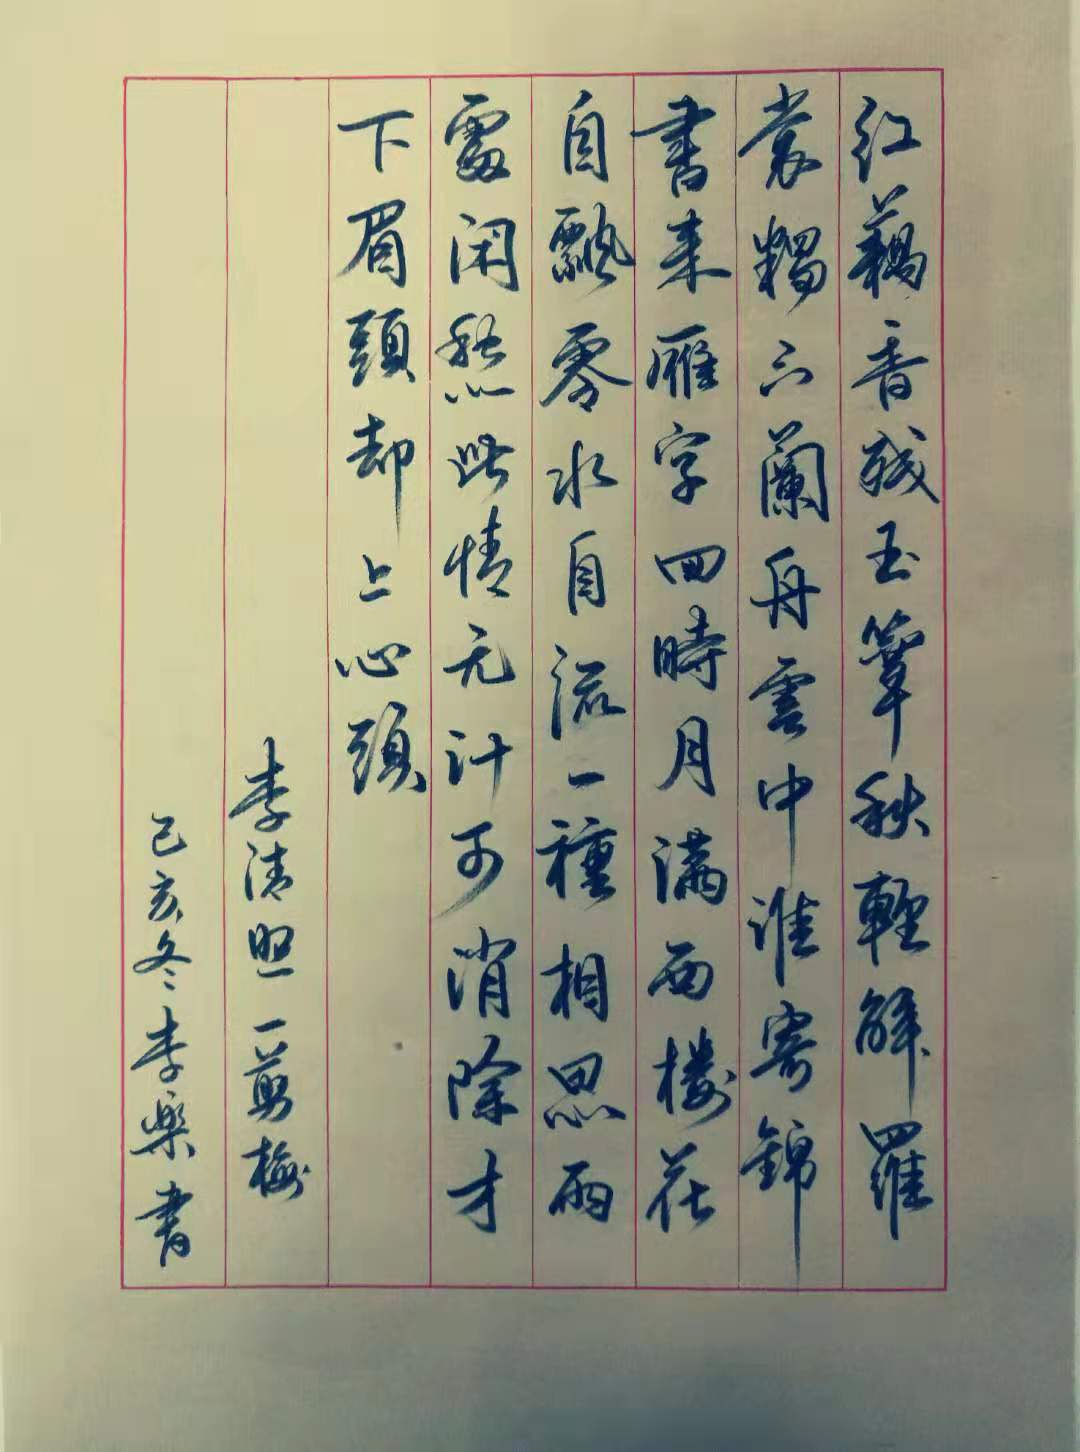 红藕香残玉簟秋輕解羅
裳獨上蘭舟雲中谁寄錦
書来雁字回時月满西楼花
自飄零水自流一種相思两
處闲愁此情无计可消除才
下眉頭却上心頭
李清照一剪梅
己亥冬李樂書